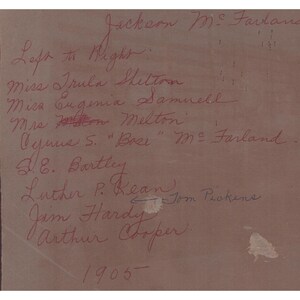 Jackson McFarland
Left to Right
Miss Trula Shelton
Miss Eugenia Samuell
Mrs Melton
Cyrus S. "Boce" McFarland
S. E. Bartley
Luther P. Kean
Tom Pickens
Jim Hardy
Arthur Cooper
1905